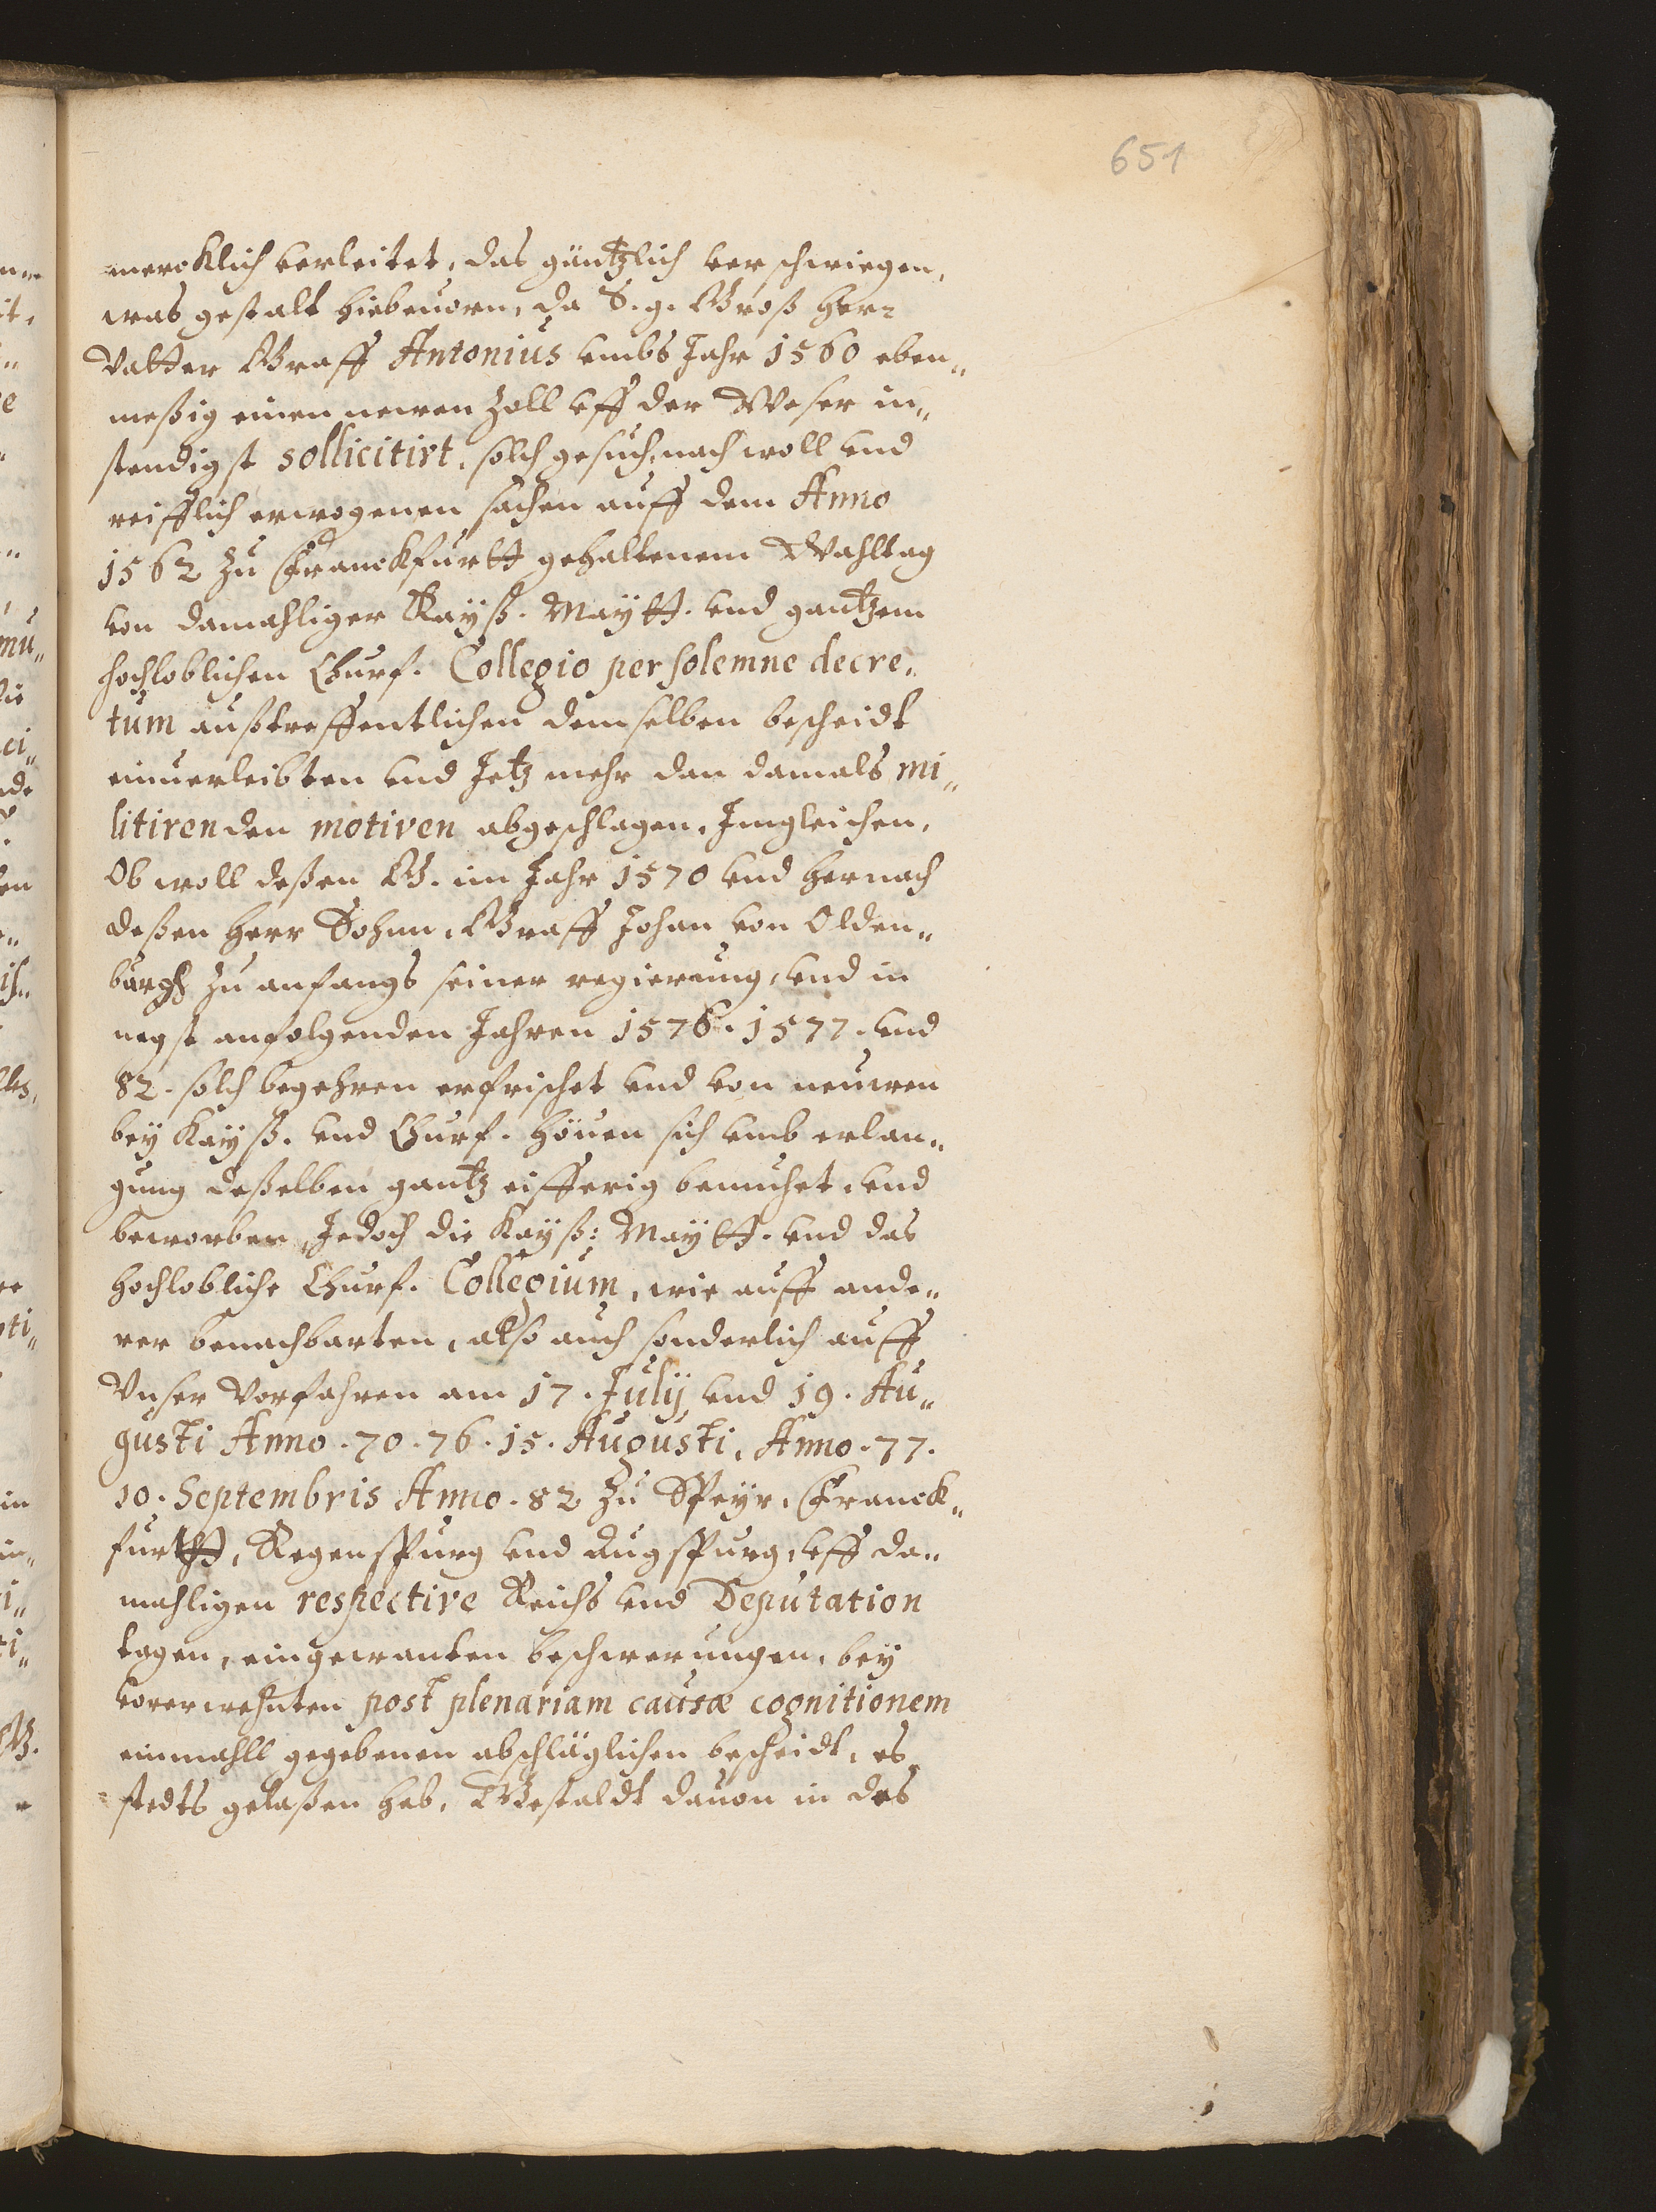 651
mercklich verleitet, das gäntzlich verschwiegen,
was gestalt hiebeuorn, da S. g. Groß Her¬
Vatter Graff Antonius vmbs Jahr 1560 eben„
meßig einen newen Zoll vff der Weser in„
stendigst sollicitirt, solch gesuch, nach woll vnd
reifflich erwogenen sachen auff dem Anno
1562 zu Franckfurtt gehaltenem Wahltag
von damahliger Kayß. Maytt. vnd gantzem
hochloblichen Churf. Collegio per solemne decre„
tum außtreffentlichen demselben bescheidt
einuerleibten vnd Jetz mehr dan damals mi„
litirenden motiven abgeschlagen, Jngleichen,
Ob woll deßen G. im Jahr 1570 vnd hernach
deßen Herr Sohnn, Graff Johan von Olden„
burgh zu anfangs seiner regierung, vnd in
negst anfolgenden Jahren 1576. 1577. vnd
82. solch begehren erfrischet vnd von neuwen
bey Kayß. vnd Churf. Höuen sich vmb erlan„
gung deßelben gantz eifferig bemuhet, vnd
beworben, Jedoch die Kayß: Maytt. vnd das
hochlobliche Churf. Collegium, wie auff ande„
rer benachbarten, also auch sonderlich auff
Vnser Vorfahren am 17. Julij vnd 19. Au„
gusti Anno. 70. 76. 15. Augusti, Anno. 77.
10. Septembris Anno. 82 zu Speyr, Franck„
furtt, Regenspurg vnd Augspurg, vff da„
mahligen respective Reichs vnd Deputation
tagen, eingewanten beschwerungen, bey
vorerwehnten post plenariam causæ cognitionem
einmahll gegebenen abschläglichen bescheidt, es
stedts gelaßen hab, Gestaldt dauon in des